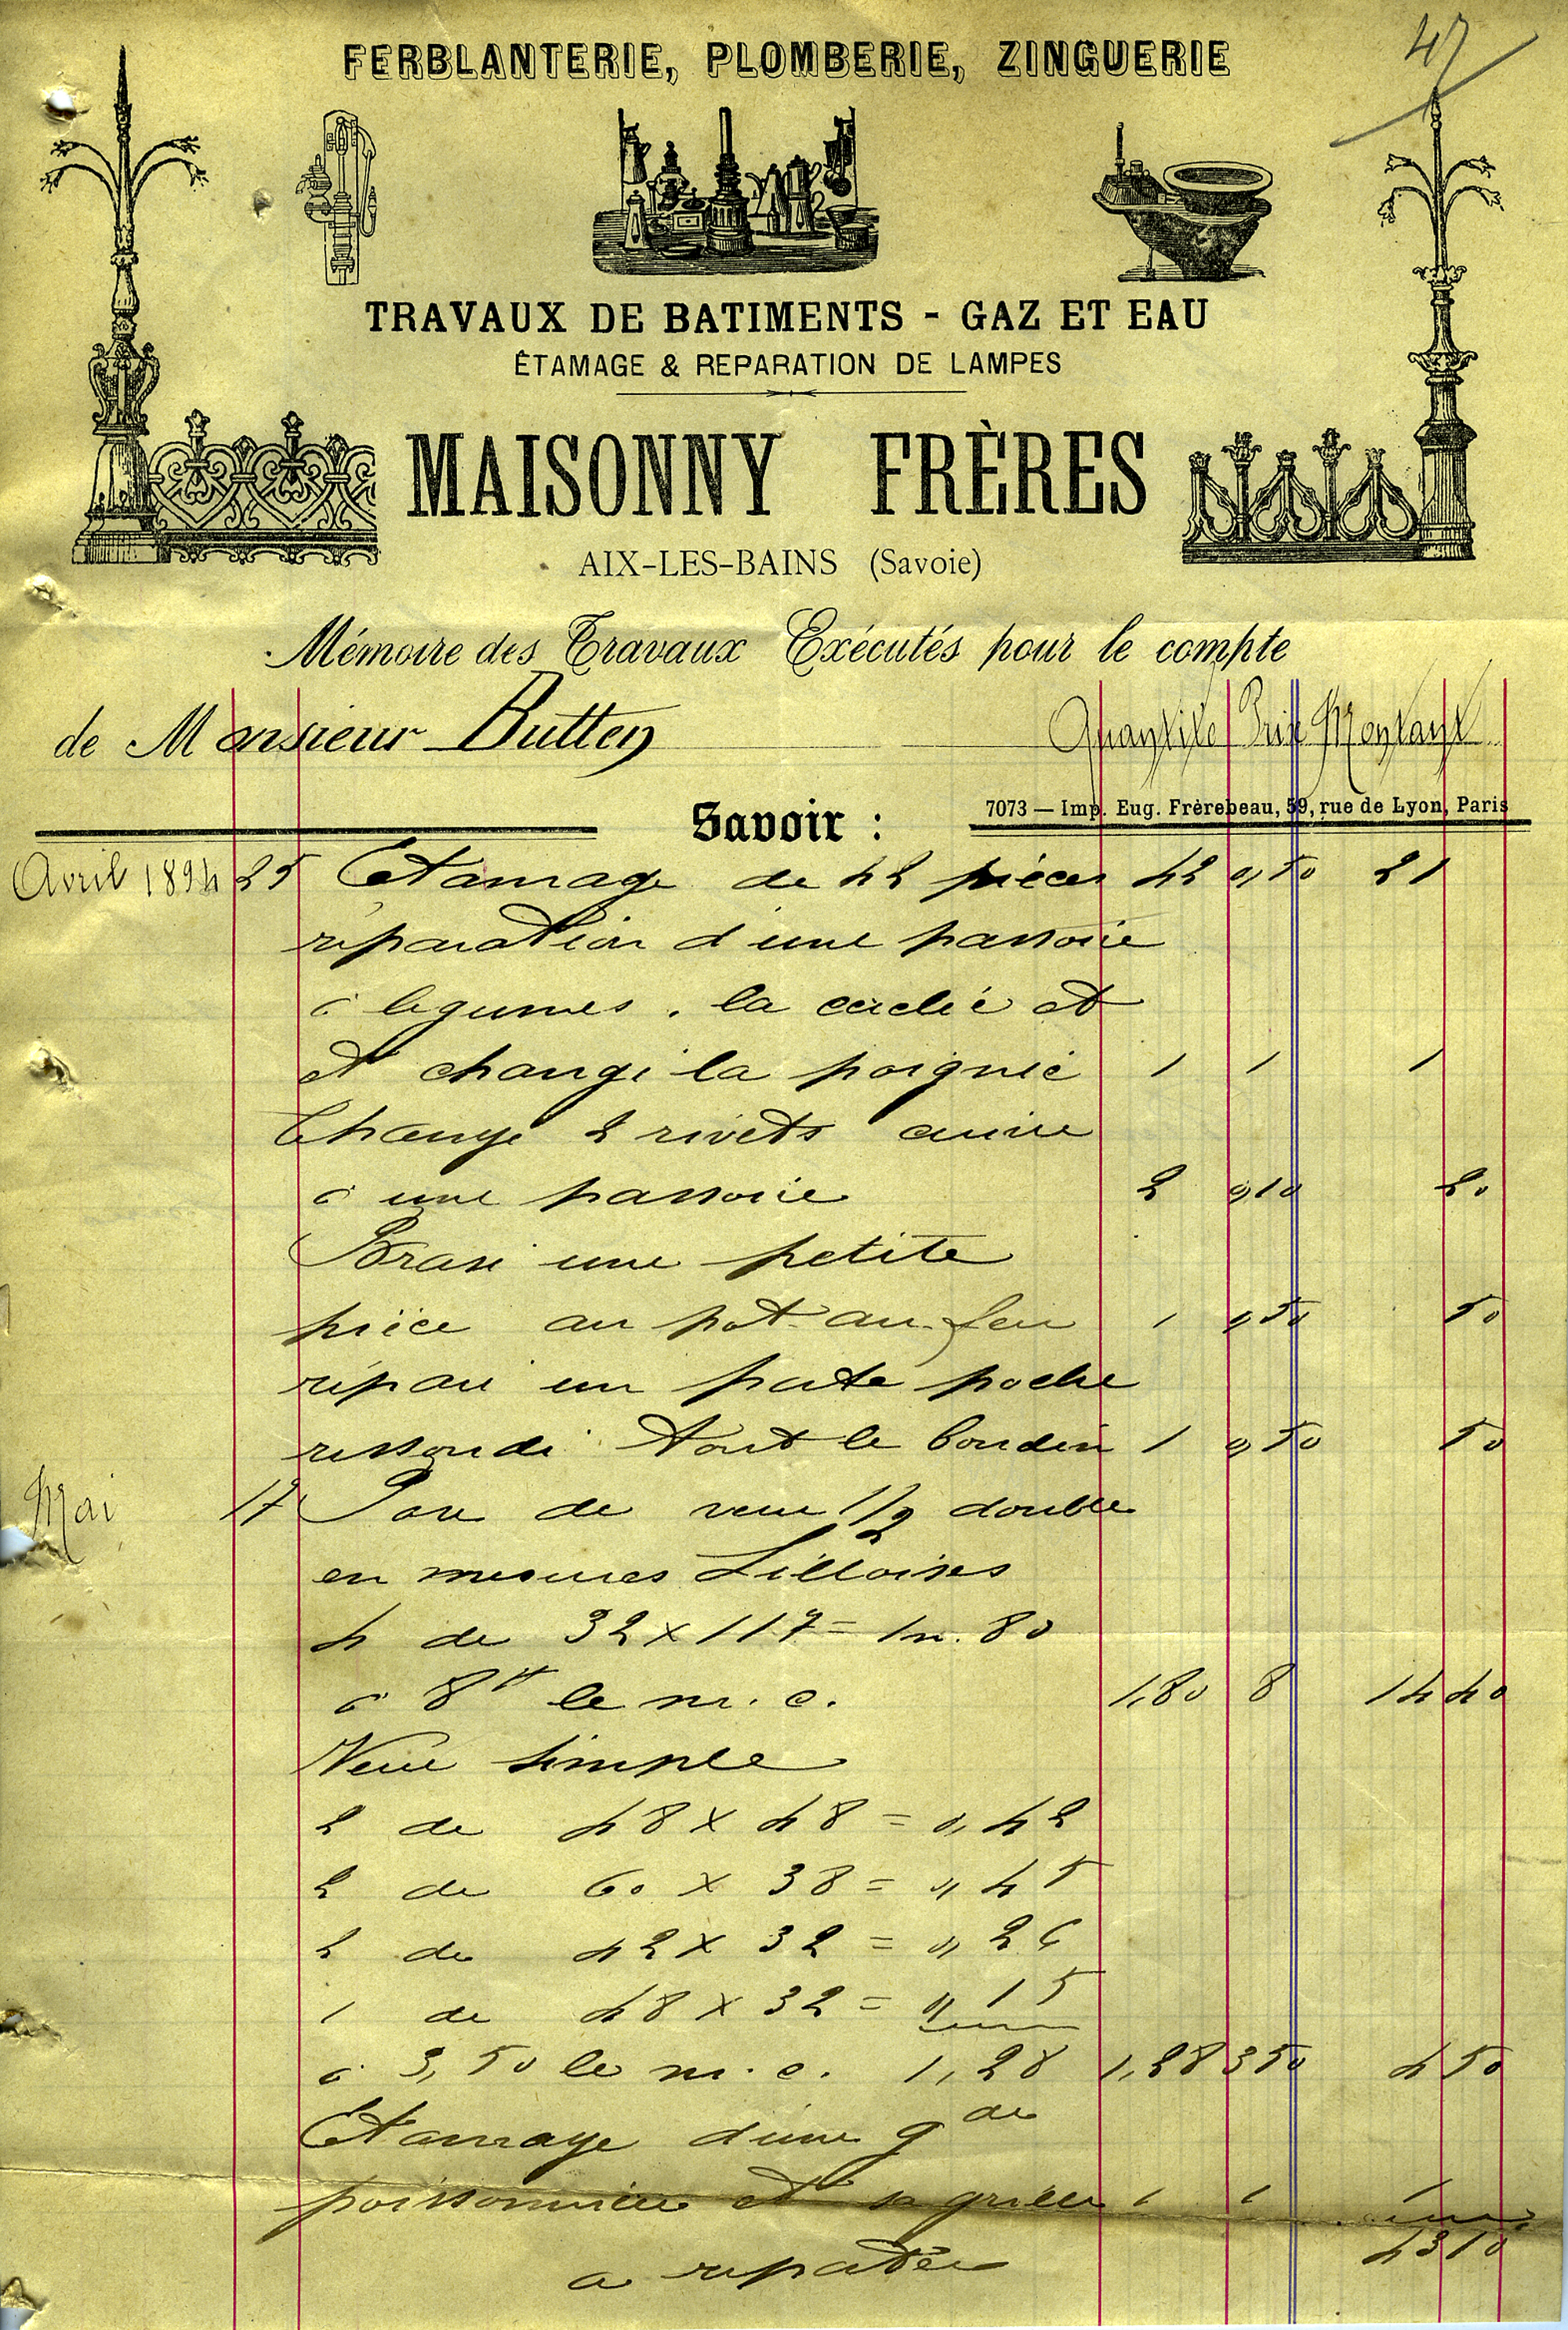 47
FERBLANTERIE, PLOMBERIE, ZINGUERIE
TRAVAUX DE BATIMENTS - GAZ ET EAU
ÉTAMAGE & REPARATION DE LAMPES
MAISONNY FRÈRES
AIX-LES-BAINS (Savoie)
Mémoire des Travaux Exécutés pour le compte
de Monsieur Butten Quantité Prix Montant
7073 — Imp. Eug. Frèrebeau, 59, rue de Lyon, Paris
Savoir :
Avril 1894 25 Etamage de 42 pièces 42 0,50 21
réparation d'une passoire
à legumes, la cerclé et
et changé la poignée 1 1 1
Changé 2 rivets cuivre
à une passoire 2 0,10 20
Brasé une petite
pièce au pot-au-feu 1 0,50 50
réparé un porte poche
ressoudé tout le boudin 1 0,50 50
Mai 17 Pose de verre 1/2 double
en mesures Lilloises
4 de 32 x 117 = 1m.80
à 8f le m.c. 1,80 8 14 40
Verre simple
2 de 48 x 48 = 0,42
2 de 60 x 38 = 0,45
2 de 42 x 32 = 0,26
1 de 48 x 32 = 0,15
à 3,50 le m.c. 1,28 1,28 3 50 4 50
Etamage d'une gde
poissonnière et sa grille 1 1 1
a reporter 43 10